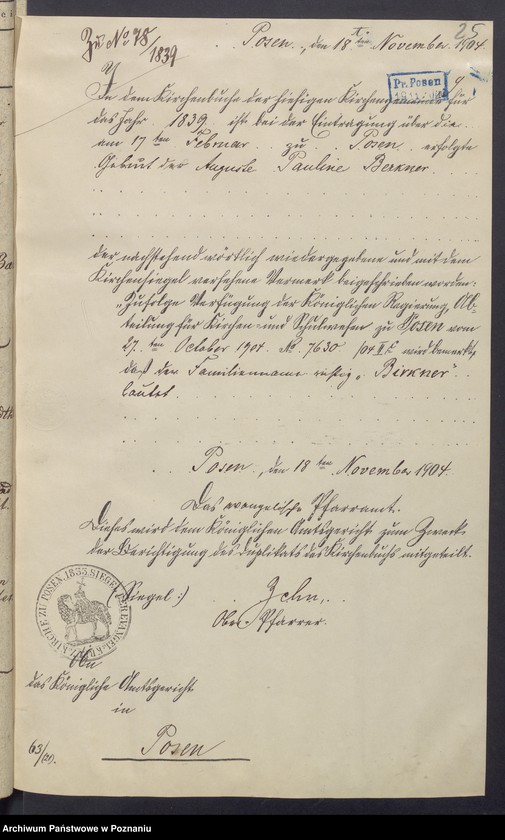 25
Zu No 78/1839
Posen, den 18ten November 1904.
Pr. Posen
In dem Kirchenbuche der hiesigen Kirchengemeinde für
das Jahr 1839 ist bei der Eintragung über die
am 17ten Februar zu Posen erfolgte
Geburt der Auguste Pauline Berkner
der nachstehend wörtlich wiedergegebene und mit dem
Kirchensiegel versehene Vermerk beigeschrieben worden:
„Zufolge Verfügung der Königlichen Regierung, Ab-
teilung für Kirchen- und Schulwesen zu Posen vom
27.ten October 1904. No. 7630/04 wird bemerkt,
daß der Familienname richtig „Birkner"
lautet.
Posen, den 18ten November 1904.
Das evangelische Pfarramt.
Dieses wird dem Königlichen Amtsgericht zum Zwecke
der Berichtigung des Duplikats des Kirchenbuchs mitgeteilt.
(Siegel:)
Zehn,
Ober-Pfarrer.
An
das Königliche Amtsgericht
in
Posen
63/
Archiwum Państwowe w Poznaniu
szukajwarchiwach.pl